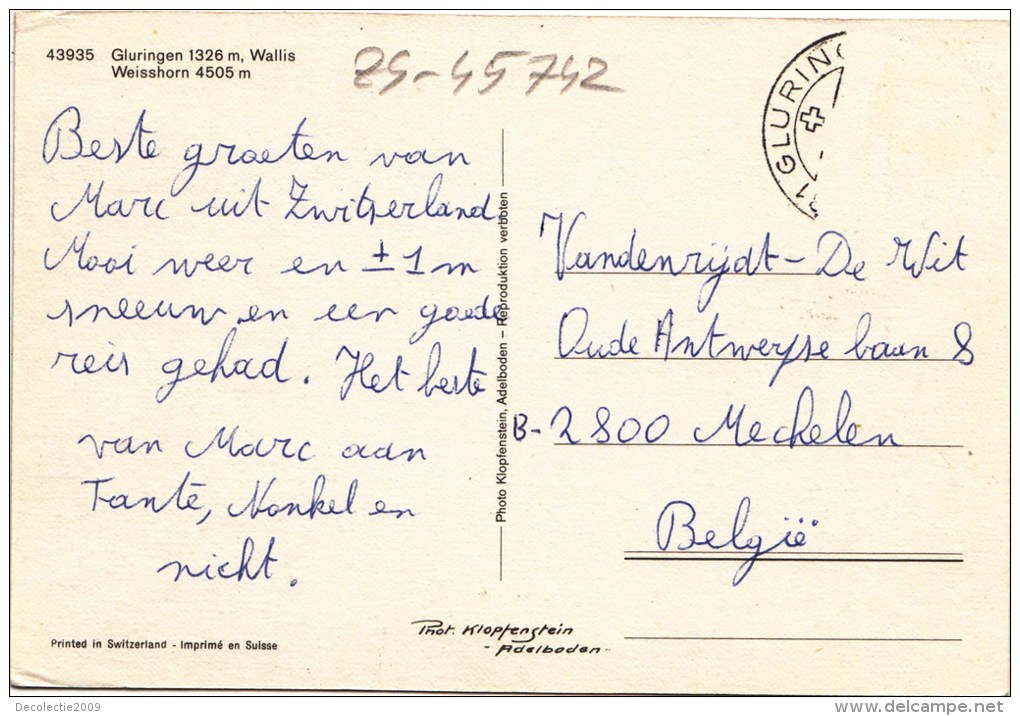 43935 Gluringen 1326 m, Wallis
Weisshorn 4505 m
Beste groeten van
Marc uit Zwitserland
Mooi weer en ± 1m
sneeuw en een goede
reis gehad. Het beste
van Marc aan
Tante, Nonkel en
nicht.
Printed in Switzerland - Imprimé en Suisse
Photo Klopfenstein, Adelboden – Reproduktion verboten
Phot. Klopfenstein
- Adelboden -
GLURIN
Vandenrijdt - De Wit
Oude Antwerpse baan 8
B-2800 Mechelen
België
Decolectie2009
delcampe.net